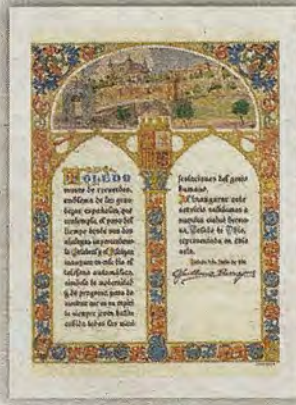 TOLEDO
museo de recuerdos,
emblema de las gran-
dezas españolas, que
contempla el paso del
tiempo desde sus dos
atalayas
la Catedral y el Alcázar
inaugura en este día el
teléfono automático,
símbolo de modernidad
y de progreso, para de-
mostrar que en su espíri-
tu siempre joven hallan
cabida todas las mani-
festaciones del genio
humano.
Al inaugurar este
servicio saludamos a
nuestra ciudad herma-
na, Toledo de Ohio,
representada en este
acto.